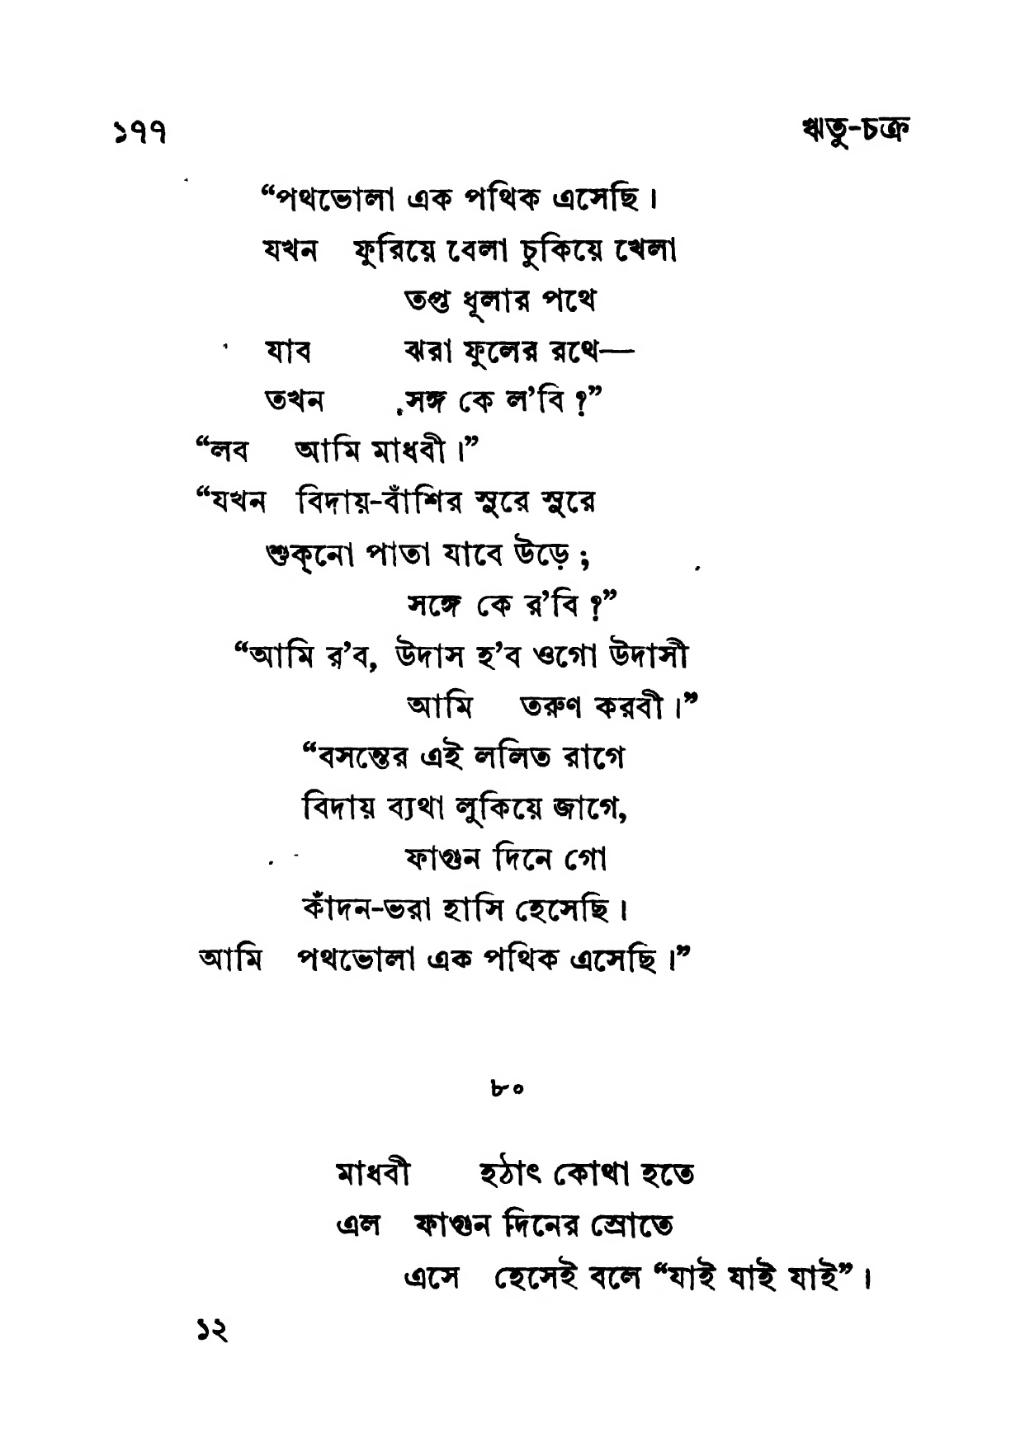 ১৭৭ ঋতু-চক্র
“পথভোলা এক পথিক এসেছি।
যখন ফুরিয়ে বেলা চুকিয়ে খেলা
তপ্ত ধূলার পথে
যাব ঝরা ফুলের রথে—
তখন সঙ্গ কে ল’বি ?”
“লব আমি মাধবী।”
“যখন বিদায়-বাঁশির সুরে সুরে
শুক্‌নো পাতা যাবে উড়ে ;
সঙ্গে কে র’বি ?”
“আমি র’ব, উদাস হ’ব ওগো উদাসী
আমি তরুণ করবী।”
“বসন্তের এই ললিত রাগে
বিদায় ব্যথা লুকিয়ে জাগে,
ফাগুন দিনে গো
কাঁদন-ভরা হাসি হেসেছি।
আমি পথভোলা এক পথিক এসেছি।”
৮০
মাধবী হঠাৎ কোথা হতে
এল ফাগুন দিনের স্রোতে
এসে হেসেই বলে “যাই যাই যাই”।
১২